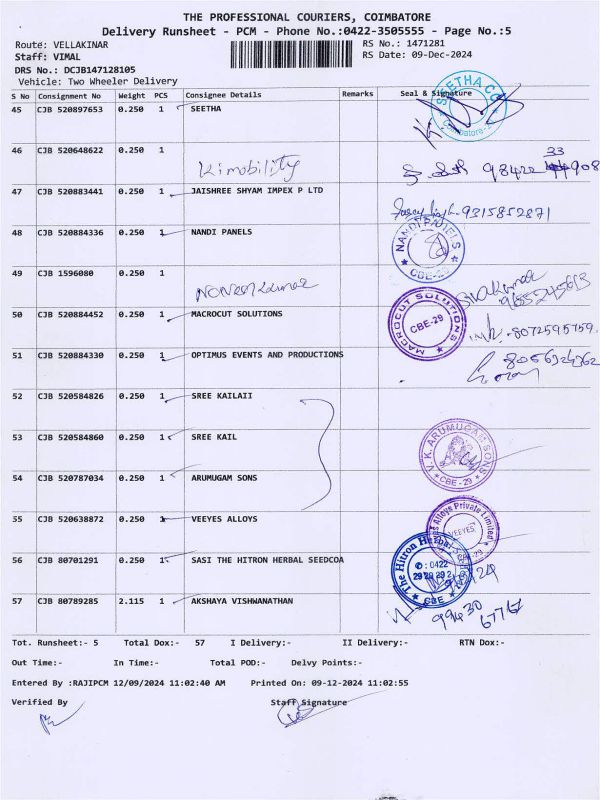 THE PROFESSIONAL COURIERS, COIMBATORE
Delivery Runsheet - PCM - Phone No.:0422-3505555 - Page No.:5
Route: VELLAKINAR
RS No.: 1471281
Staff: VIMAL
RS Date: 09-Dec-2024
DRS No.: DCJB147128105
Vehicle: Two Wheeler Delivery
S No Consignment No Weight PCS Consignee Details Remarks Seal & Signature
45 CJB 520897653 0.250 1 SEETHA
SEETHA CO
Coimbatore-
46 CJB 520648622 0.250 1 Kimobility
33
98422 908
47 CJB 520883441 0.250 1 JAISHREE SHYAM IMPEX P LTD
9315852871
48 CJB 520884336 0.250 1 NANDI PANELS
NANDI PANELS
CBE-29
49 CJB 1596080 0.250 1
50 CJB 520884452 0.250 1 MACROCUT SOLUTIONS
MACROCUT SOLUTIONS
CBE-29
8072595759
51 CJB 520884330 0.250 1 OPTIMUS EVENTS AND PRODUCTIONS
52 CJB 520584826 0.250 1 SREE KAILAII
53 CJB 520584860 0.250 1 SREE KAIL
V. K. ARUMUGAM SONS
CBE-29
54 CJB 520787034 0.250 1 ARUMUGAM SONS
55 CJB 520638872 0.250 1 VEEYES ALLOYS
Alloys Private Limited
VEEYES
56 CJB 80701291 0.250 1 SASI THE HITRON HERBAL SEEDCOA
The Hitron Herbal
: 0422
CBE
57 CJB 80789285 2.115 1 AKSHAYA VISHWANATHAN
99430
67767
Tot. Runsheet:- 5 Total Dox:- 57 I Delivery:- II Delivery:- RTN Dox:-
Out Time:- In Time:- Total POD:- Delvy Points:-
Entered By :RAJIPCM 12/09/2024 11:02:40 AM Printed On: 09-12-2024 11:02:55
Verified By Staff Signature